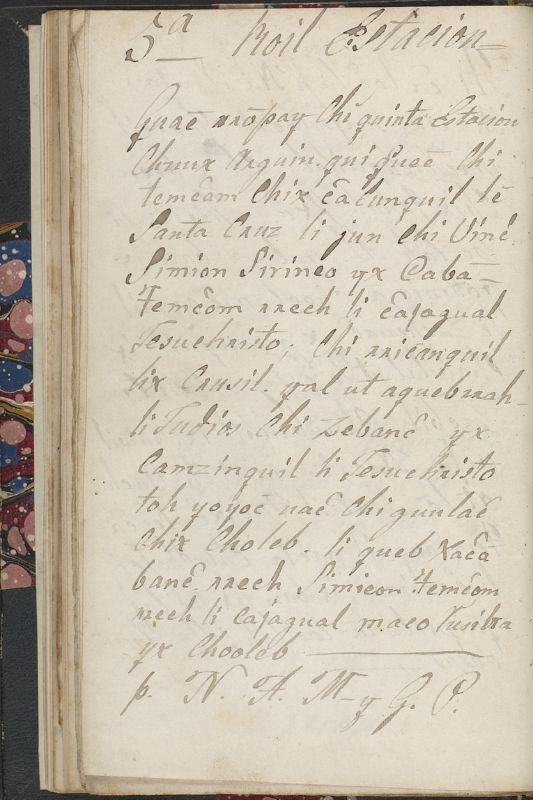 5ª Roil Estacion
Quaē nrōpay Chi quinta Estacion
Chuux Aquin. qui queē Chi
temēam Chix cācunquil lē
Santa Cruz li jun Chi Vinē
Simion Sirineo yx Cabā
temēom rrech li cājagual
Jesuchristo; Chi rricanquil
lix Crusil. yal ut aquebrrah
li Judios Chi Zebanē yx
Camzinquil li Jesuchristo
toh yoyoē naē Chi guulaē
Chix Choleb. li queb Xacā
banē. rrech Simieon temēom
rrech li cajagual maco Tusilra
yx Chooleb
p. N. A. M y G. P.